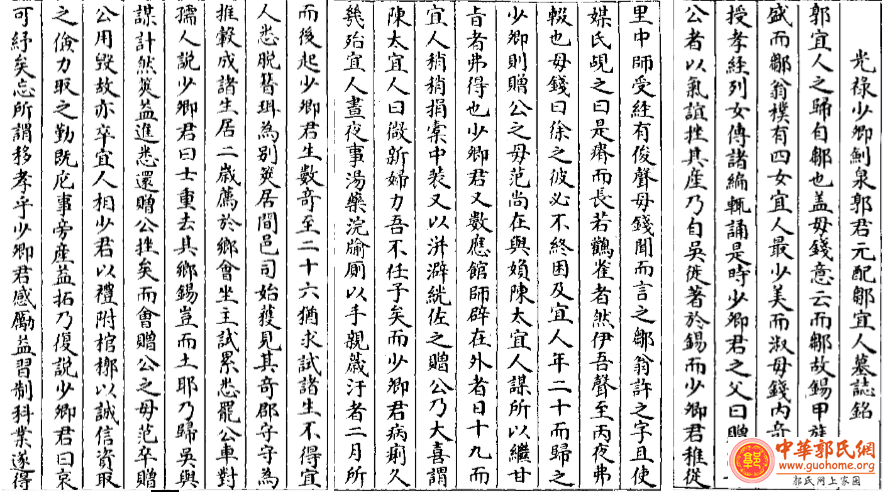 光祿少卿劍泉郭君元配鄒宜人墓誌銘
郭宜人之歸自鄒也蓋母錢意云而鄒故錫甲族
盛而鄒翁樸有四女宜人最少美而淑母錢內奇
授孝經列女傳諸編輒誦是時少卿君之父曰贈
公者以氣誼挫其產乃自吳徙著於錫而少卿君稚從
里中師受經有俊聲母錢聞而言之鄒翁許之字且使
媒氏覘之曰是瘠而長若鶴雀者然伊吾聲至丙夜弗
輟也母錢曰徐之彼必不終困及宜人年二十而歸之
少卿則贈公之母范尚在與嫡陳太宜人謀所以繼甘
旨者弗得也少卿君又數應館師辟在外者日十九而
宜人稍稍捐橐中裝又以洴澼絖佐之贈公乃大喜謂
陳太宜人曰微新婦力吾不任子矣而少卿君病痢久
幾殆宜人晝夜事湯藥浣牏廁以手親蕆汙者二月所
而後起少卿君生數奇至二十六猶求試諸生不得宜
人悉脫簪珥為別筴居間邑司始獲見其奇郡守守為
推轂成諸生居二歲薦於鄉會坐主試累悉罷公車對
孺人說少卿君曰士重去其鄉錫豈而土耶乃歸吳與
謀計然筴益進悉還贈公挫矣而會贈公之母范卒贈
公用毀故亦卒宜人相少君以禮附棺槨以誠信資取
之儉力取之勤既庀事旁產益拓乃復說少卿君曰哀
可紓矣忘所謂移孝乎少卿君感勵益習制科業遂得
中華郭氏網
www.guohome.org
郭氏网上家园